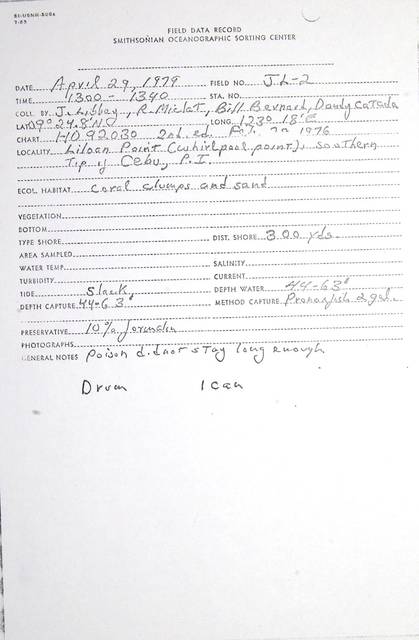 SI-USNM-SU06
7-65
FIELD DATA RECORD
SMITHSONIAN OCEANOGRAPHIC SORTING CENTER
DATE April 29, 1979 FIELD NO. JL-2
TIME 1300 - 1340 STA. NO.
COLL. BY J. Libbay, R. Miclat, Bill Bernard, Dandy
LAT. 09° 24.8' N LONG. 123° 18' E
CHART HO 92030 2nd. ed. Feb. 1976
LOCALITY Liloan Point (whirlpool point), southern
Tip of Cebu, P.I.
ECOL. HABITAT coral clumps and sand
VEGETATION
BOTTOM
TYPE SHORE DIST. SHORE 300 yds.
AREA SAMPLED
WATER TEMP. SALINITY
TURBIDITY CURRENT
TIDE slack DEPTH WATER 44-63'
DEPTH CAPTURE 44-63' METHOD CAPTURE Pronoxfish 2 gal.
PRESERVATIVE 10% formalin
PHOTOGRAPHS
GENERAL NOTES Poison did not stay long enough
Drum 1 can